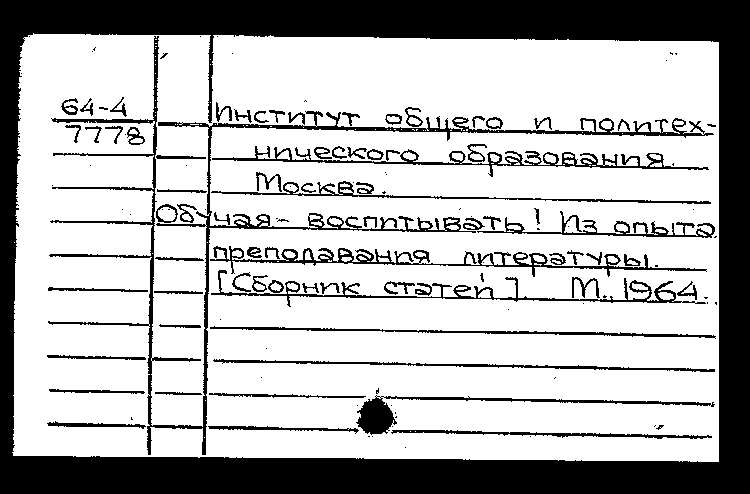 64-4 Институт общего и политех-
7778 нического образования.
Москва.
Обучая- воспитывать! Из опыта
преподавания литературы.
[Сборник статей]. М., 1964.